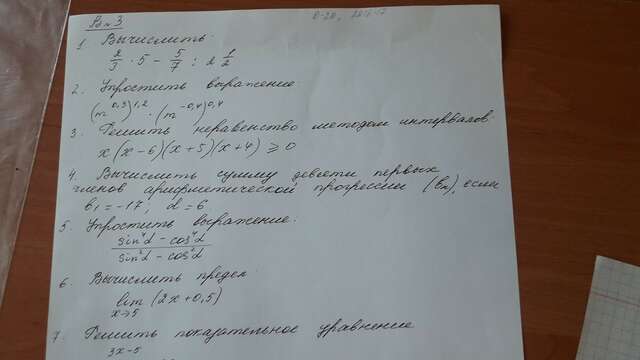 В-3
1. Вычислить:
2/3 · 5 - 5/7 : 2 1/2
2. Упростить выражение
(m^0,3)^1,2 · (m^-0,4)^0,4
3. Решить неравенство методом интервалов.
x(x-6)(x+5)(x+4) ≥ 0
4. Вычислить сумму девяти первых
членов арифметической прогрессии (bn), если
b₁ = -17; d = 6
5. Упростить выражение:
sin⁴α - cos⁴α
sin²α - cos²α
6. Вычислить предел
lim (2x+0,5)
x→5
7. Решить показательное уравнение
3x-5